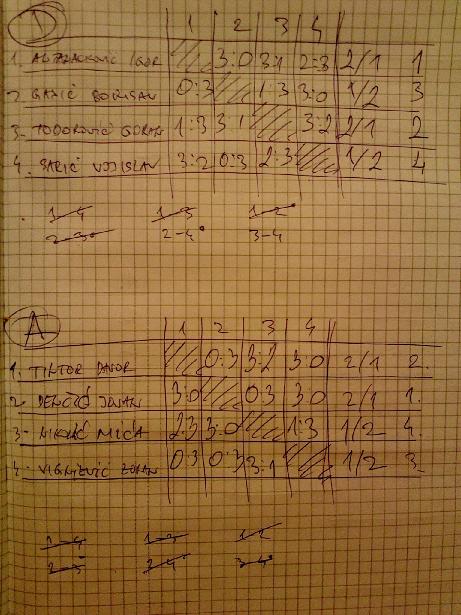 D 1 2 3 4
1. IGOR 3:0 3:1 2:3 2/1 1
2. GANIĆ BORISAV 0:3 1:3 3:0 1/2 3
3. TODOROVIĆ GORAN 1:3 3:1 3:2 2/1 2
4. SARIĆ VOJISLAV 3:2 0:3 2:3 1/2 4
1-4 1-3 1-2
2-3 2-4 3-4
A 1 2 3 4
1. TINTOR DAVOR 0:3 3:2 3:0 2/1 2.
2. JOVAN 3:0 0:3 3:0 2/1 1.
3. NIKOLIĆ MIĆA 2:3 3:0 1:3 1/2 4.
4. ZORAN 0:3 0:3 3:1 1/2 3.
1-4 1-3 1-2
2-3 2-4 3-4